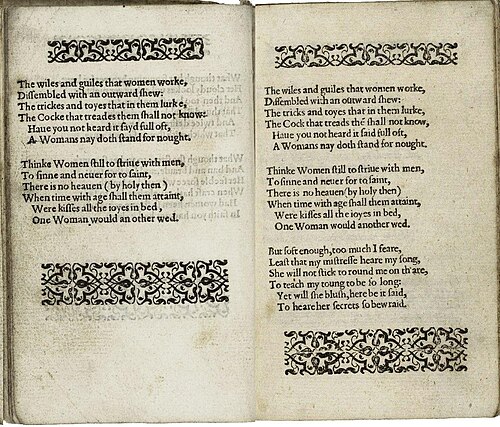 The wiles and guiles that women worke,
Dissembled with an outward shew:
The trickes and toyes that in them lurke,
The Cocke that treades them shall not know:
Haue you not heard it sayd full oft,
A Womans nay doth stand for nought.
Thinke Women still to striue with men,
To sinne and neuer for to saint,
There is no heauen (by holy then)
When time with age shall them attaint,
Were kisses all the ioyes in bed,
One Woman would an other wed.
The wiles and guiles that women worke,
Dissembled with an outward shew:
The tricks and toyes that in them lurke,
The Cock that treads thē shall not know,
Haue you not heard it said full oft,
A Womans nay doth stand for nought.
Thinke Women still to striue with men,
To sinne and neuer for to saint,
There is no heauen (by holy then)
When time with age shall them attaint,
Were kisses all the ioyes in bed,
One Woman would another wed.
But soft enough, too much I feare,
Least that my mistresse heare my song,
She will not stick to round me on th'are,
To teach my toung to be so long:
Yet will she blush, here be it said,
To heare her secrets so bewraid.